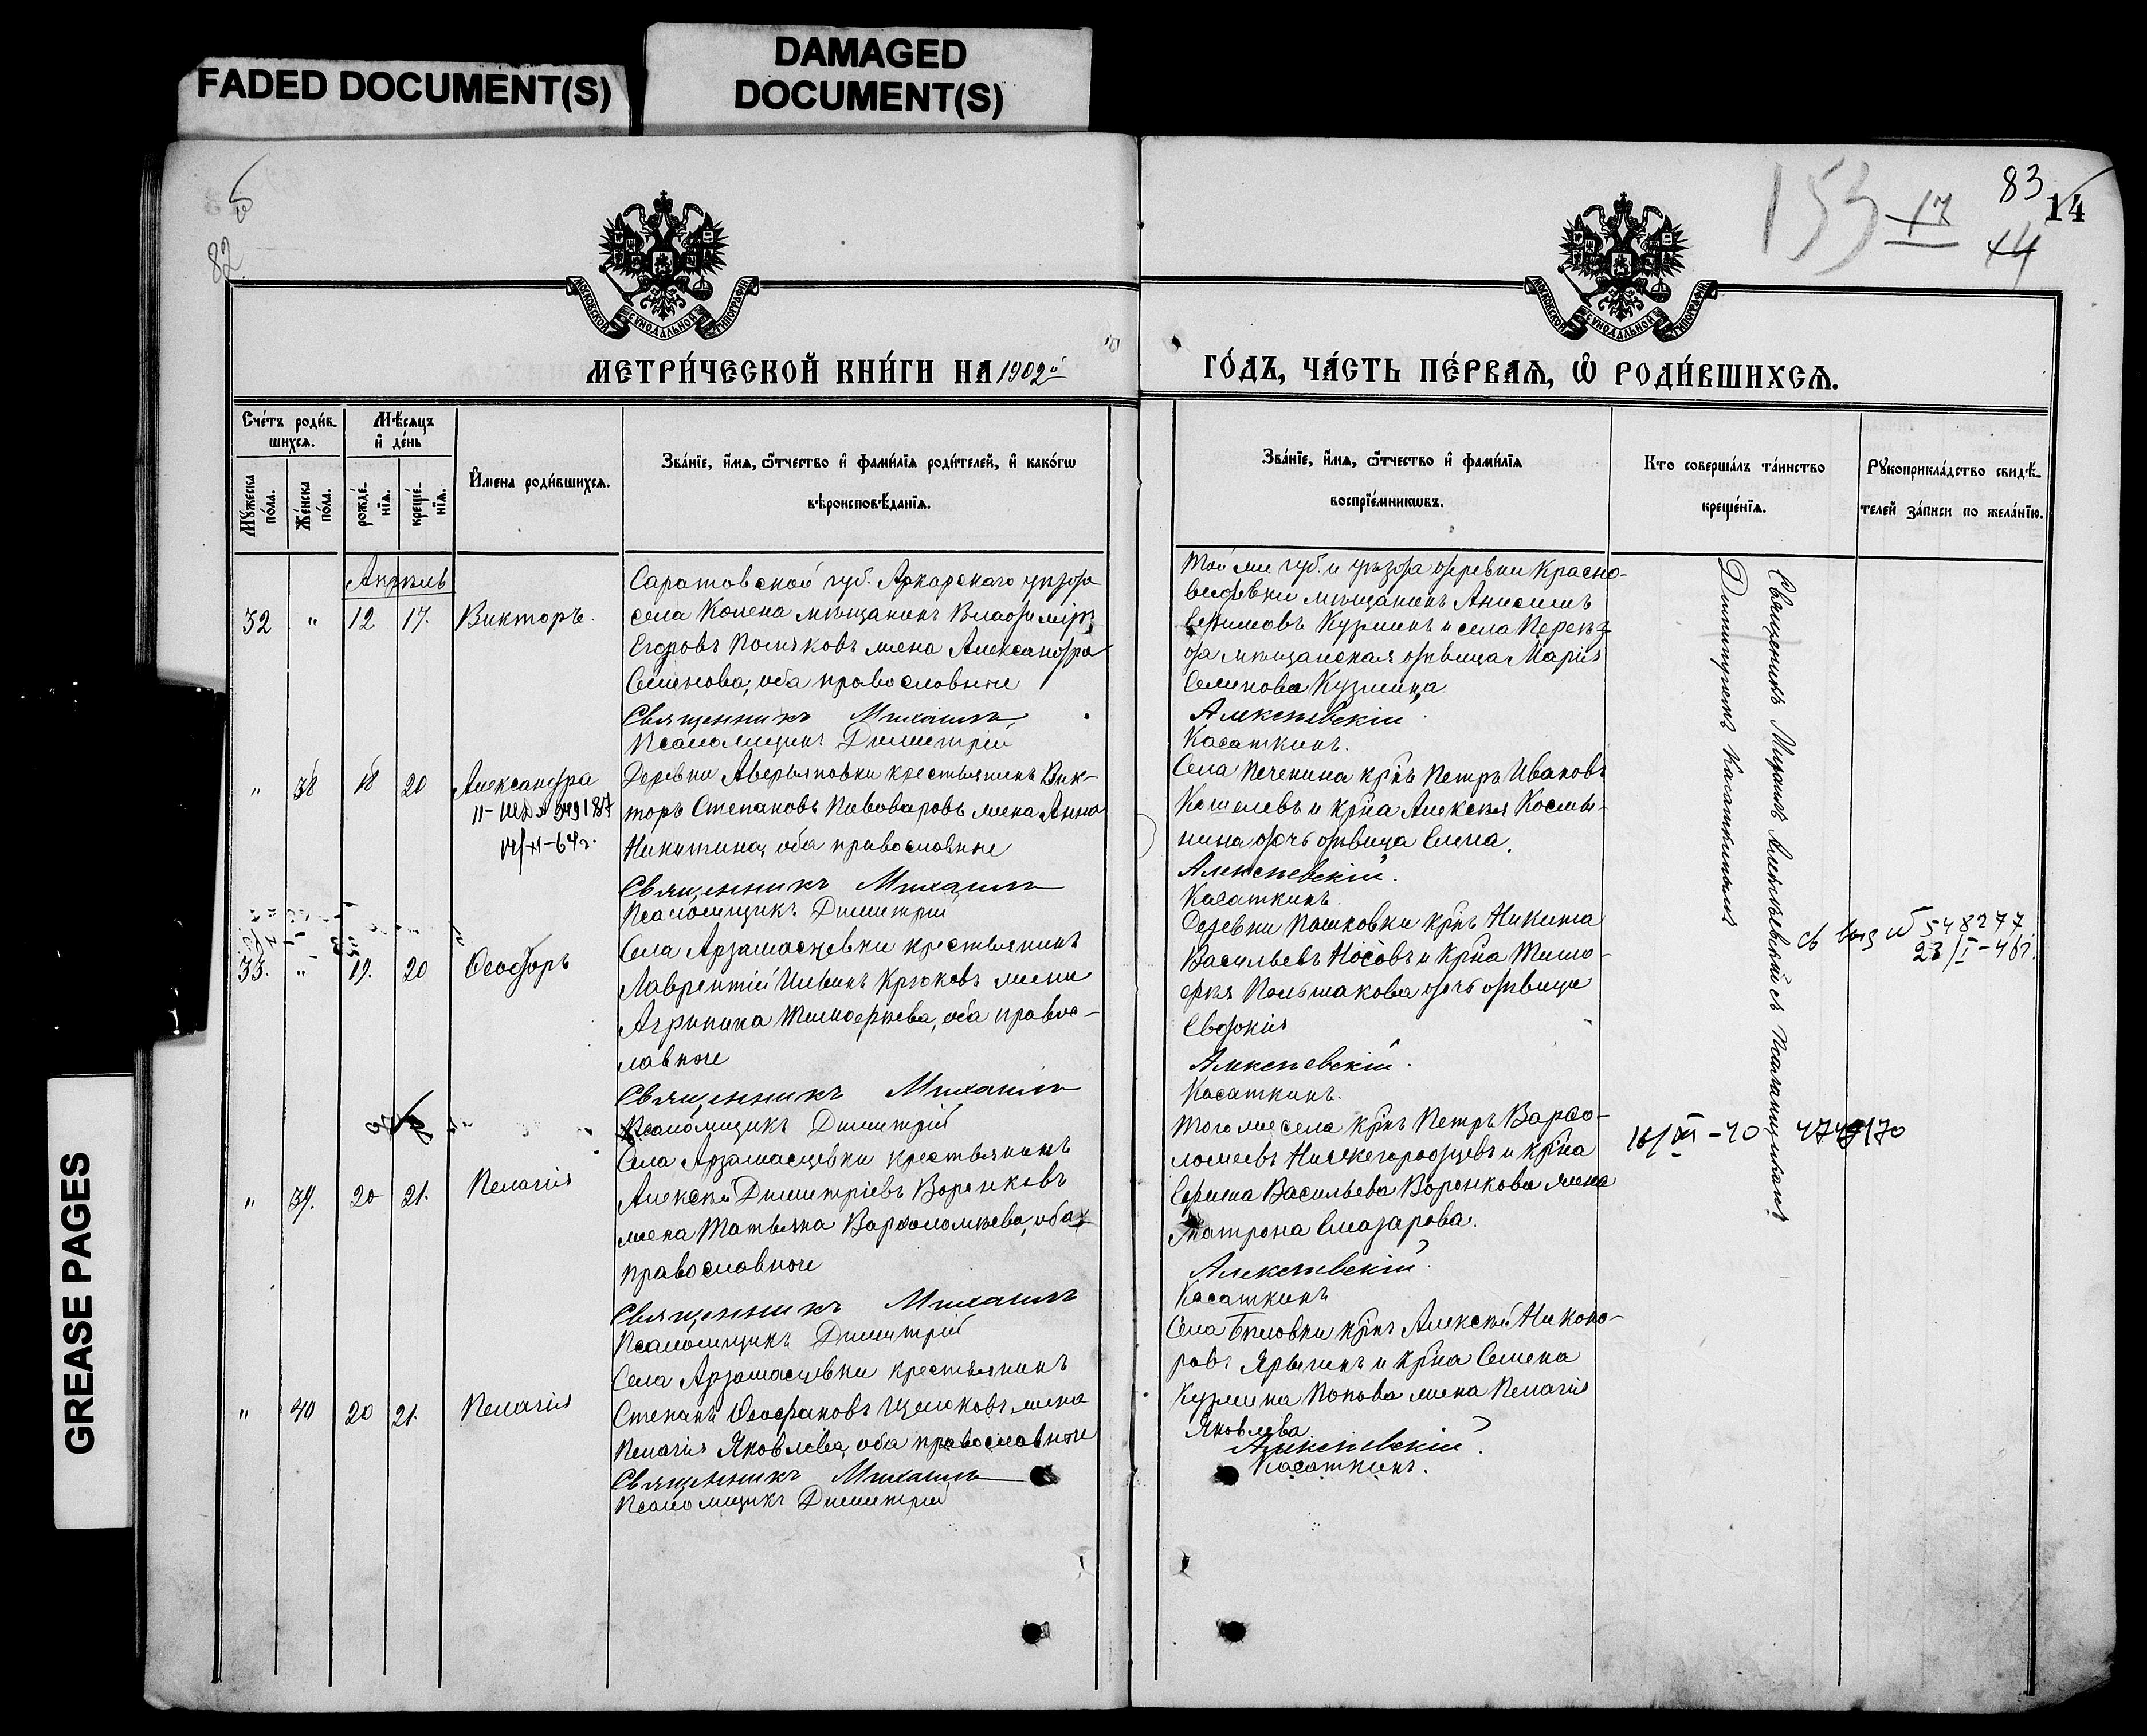 FADED DOCUMENT(S)
DAMAGED
DOCUMENT(S)
GREASE PAGES
82
83
14
153
17
14
МОСКОВСКОЙ СѴНОДАЛЬНОЙ ТИПОГРАФІИ
МОСКОВСКОЙ СѴНОДАЛЬНОЙ ТИПОГРАФІИ
МЕТРИ́ЧЕСКОЙ КНИ́ГИ НА 1902й
ГО́ДЪ, ЧА́СТЬ ПЕ́РВАѦ, Ѡ҆ РОДИ́ВШИХСѦ.
Сче́тъ роди́в-
шихсѧ.
Мꙋ́жеска по́ла.
Же́нска по́ла.
Мѣ́сѧцъ
и҆ де́нь
рожде́-
нїѧ.
креще́-
нїѧ.
И҆мена роди́вшихсѧ.
Зва́нїе, и҆́мѧ, ѻ҆́тчество и҆ фами́лїѧ роди́телей, и҆ како́гѡ
вѣроисповѣ́данїѧ.
Зва́нїе, и҆́мѧ, ѻ҆́тчество и҆ фами́лїѧ
воспрїе́мникѡвъ.
Кто соверша́лъ та́инство
креще́нїѧ.
Рꙋкоприкла́дство свидѣ́-
телей за́писи по жела́нїю.
Апрѣль
32 " 12 17. Викторъ.
Саратовской губ. Аткарскаго уѣзда
села Копена мѣщанинъ Владиміръ
Егоровъ Поляковъ жена Александра
Семенова, оба православные
Священникъ Михаилъ
Псаломщикъ Димитрій
Той же губ. и уѣзда деревни Красно-
видовки мѣщанинъ Анисимъ
Ефимовъ Кузминъ и села Переѣз-
да мѣщанская дѣвица Марія
Семенова Кузмина
Алексѣевскій.
Касаткинъ.
" 38 18 20 Александра
Деревни Аверьяновки крестьянинъ Вик-
торъ Степановъ Пивоваровъ жена Анна
Никитина, оба православные
Священникъ Михаилъ
Псаломщикъ Димитрій
Села Печенина крнъ Петръ Ивановъ
Кошелевъ и крна Алексѣя Косты-
нина дочь дѣвица Елена.
Алексѣевскій.
Касаткинъ.
33. " 19. 20 Ѳеодоръ
Села Арзамасцевки крестьянинъ
Лаврентій Ильинъ Крюковъ жена
Агрипина Тимоѳеева, оба правос-
лавные
Священникъ Михаилъ
Псаломщикъ Димитрій
Деревни Пашковки крнъ Никита
Васильевъ Носовъ и крна Тимо-
ѳея Польшакова дочь дѣвица
Евдокія
Алексѣевскій.
Касаткинъ.
548277
23/I-46г.
" 39. 20 21. Пелагія
Села Арзамасцевки крестьянинъ
Алексѣй Димитріевъ Воронковъ
жена Татьяна Варѳоломѣева, оба
православные
Священникъ Михаилъ
Псаломщикъ Димитрій
Того же села крнъ Петръ Варѳо-
ломеевъ Нижегородцевъ и крна
Ефима Васильева Воронкова жена
Матрона Елазарова.
Алексѣевскій.
Касаткинъ
" 40 20 21. Пелагія
Села Арзамасцевки крестьянинъ
Степанъ Ѳеофановъ Щелоковъ жена
Пелагія Яковлева, оба православные
Священникъ Михаилъ
Псаломщикъ Димитрій
Села Бѣловки крнъ Алексѣй Никоно-
ровъ Ярыгинъ и крна Семена
Кузмина Попова жена Пелагія
Яковлева
Алексѣевскій.
Касаткинъ.
Священникъ Михаилъ Алексѣевскій съ Псаломщикомъ
Димитріемъ Касаткинымъ